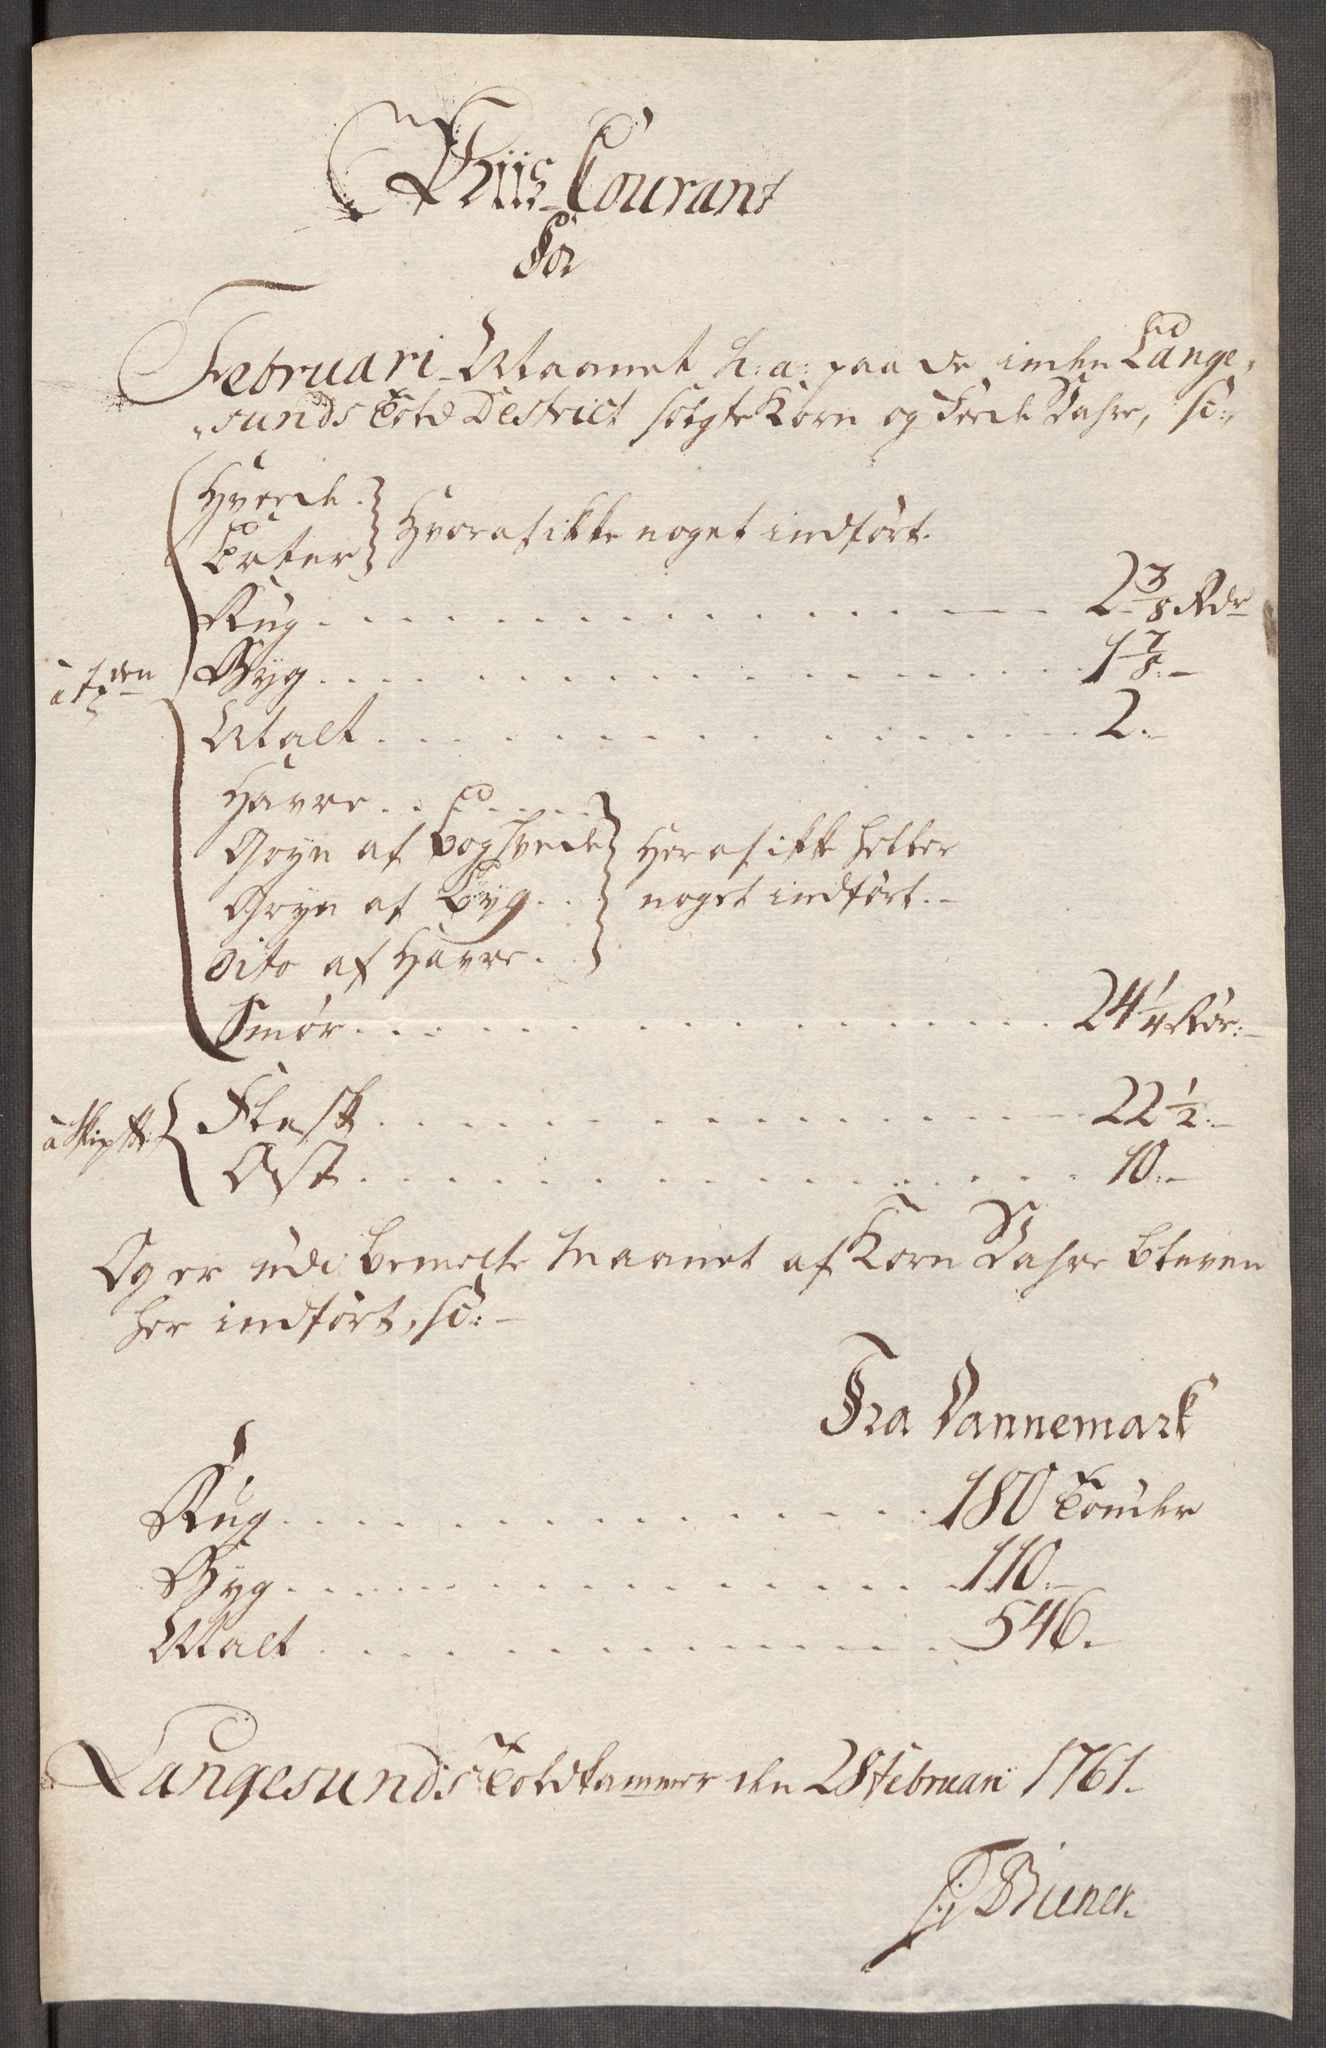 Priis-Courant
for
Februari Maanet h: a: paa de inden Lange-
sunds Told District solgte Korn og Feede Vahre, sc:
Hvede
Erter } Hvoraf ikke noget indført.
Rug . . . 2 3/8 Rdr
à Tden Byg . . . 1 7/8:-
Malt . . . 2.-
Havre . . .
Gryn af Boghvede } Heraf ikke heller
Gryn af Byg . . } noget indført.-
Dito af Havre.
Smør . . . 24 1/4 Rdr:-
à Skip℔: { Flesk . . . 22 1/2:-
Ost . . . 10:-
Og er udi bemelte Maanet af Korn Vahre bleven
her indført, sc:-
Fra Dannemark
Rug . . . 180 Tønder
Byg . . . 110.-
Malt . . . 546.-
Langesunds Toldkammer den 28 Februari 1761.